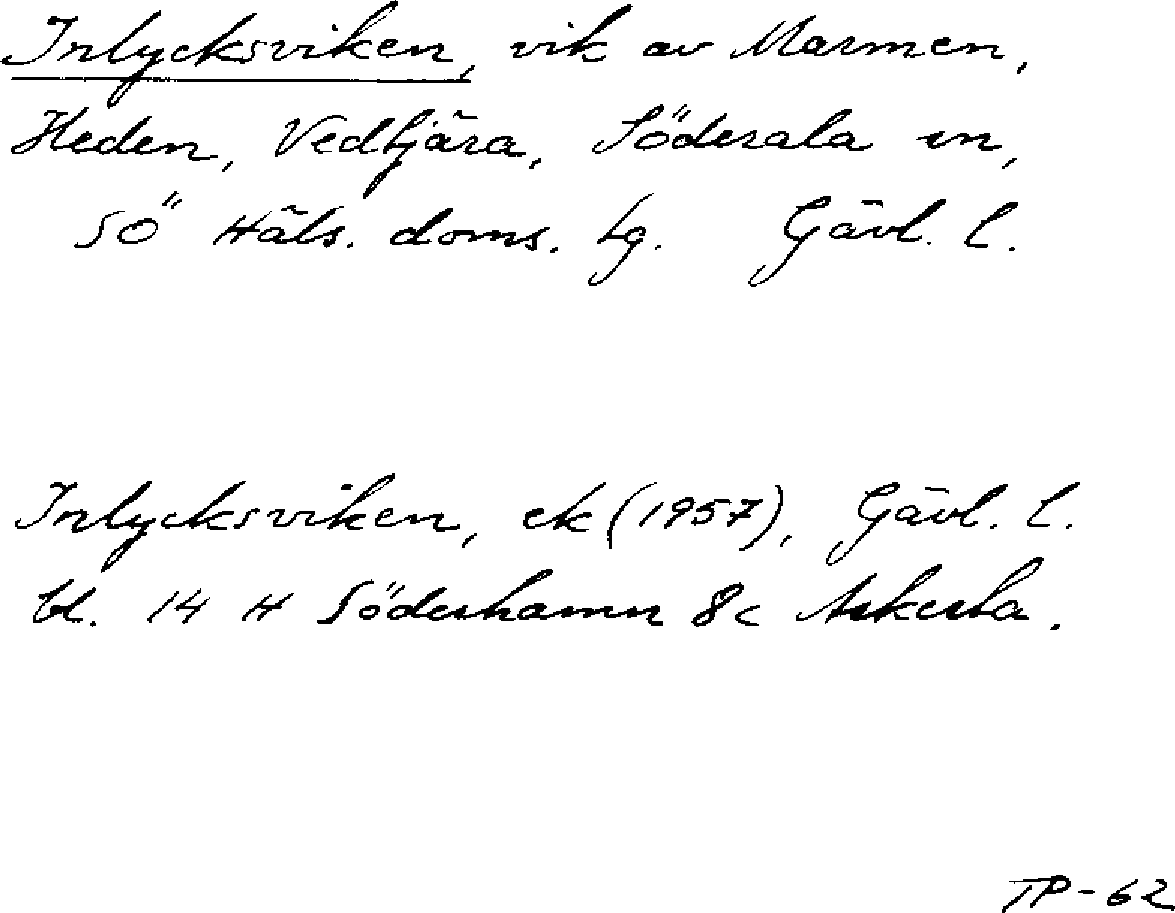 Inlycksviken, vik av Marmen,
Heden, Vedtjära, Söderala sn,
SÖ Häls. doms. tg. Gävl. l.
Inlycksviken, ek (1957), Gävl. l.
bl. 14 H Söderhamn 8c Askesta.
TP-62